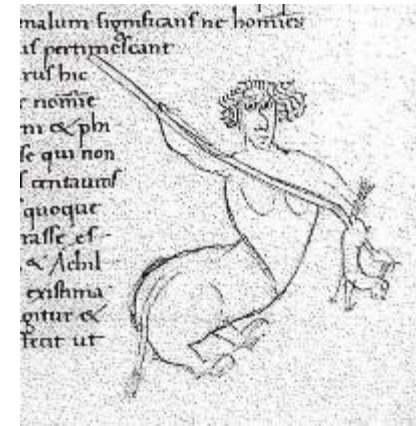 malum significans ne homīes
pertimescant
rus hic
nomīe
& phi
se qui non
centauros
quoque
rasse es-
& Achil
existima
gitur &
fecit ut